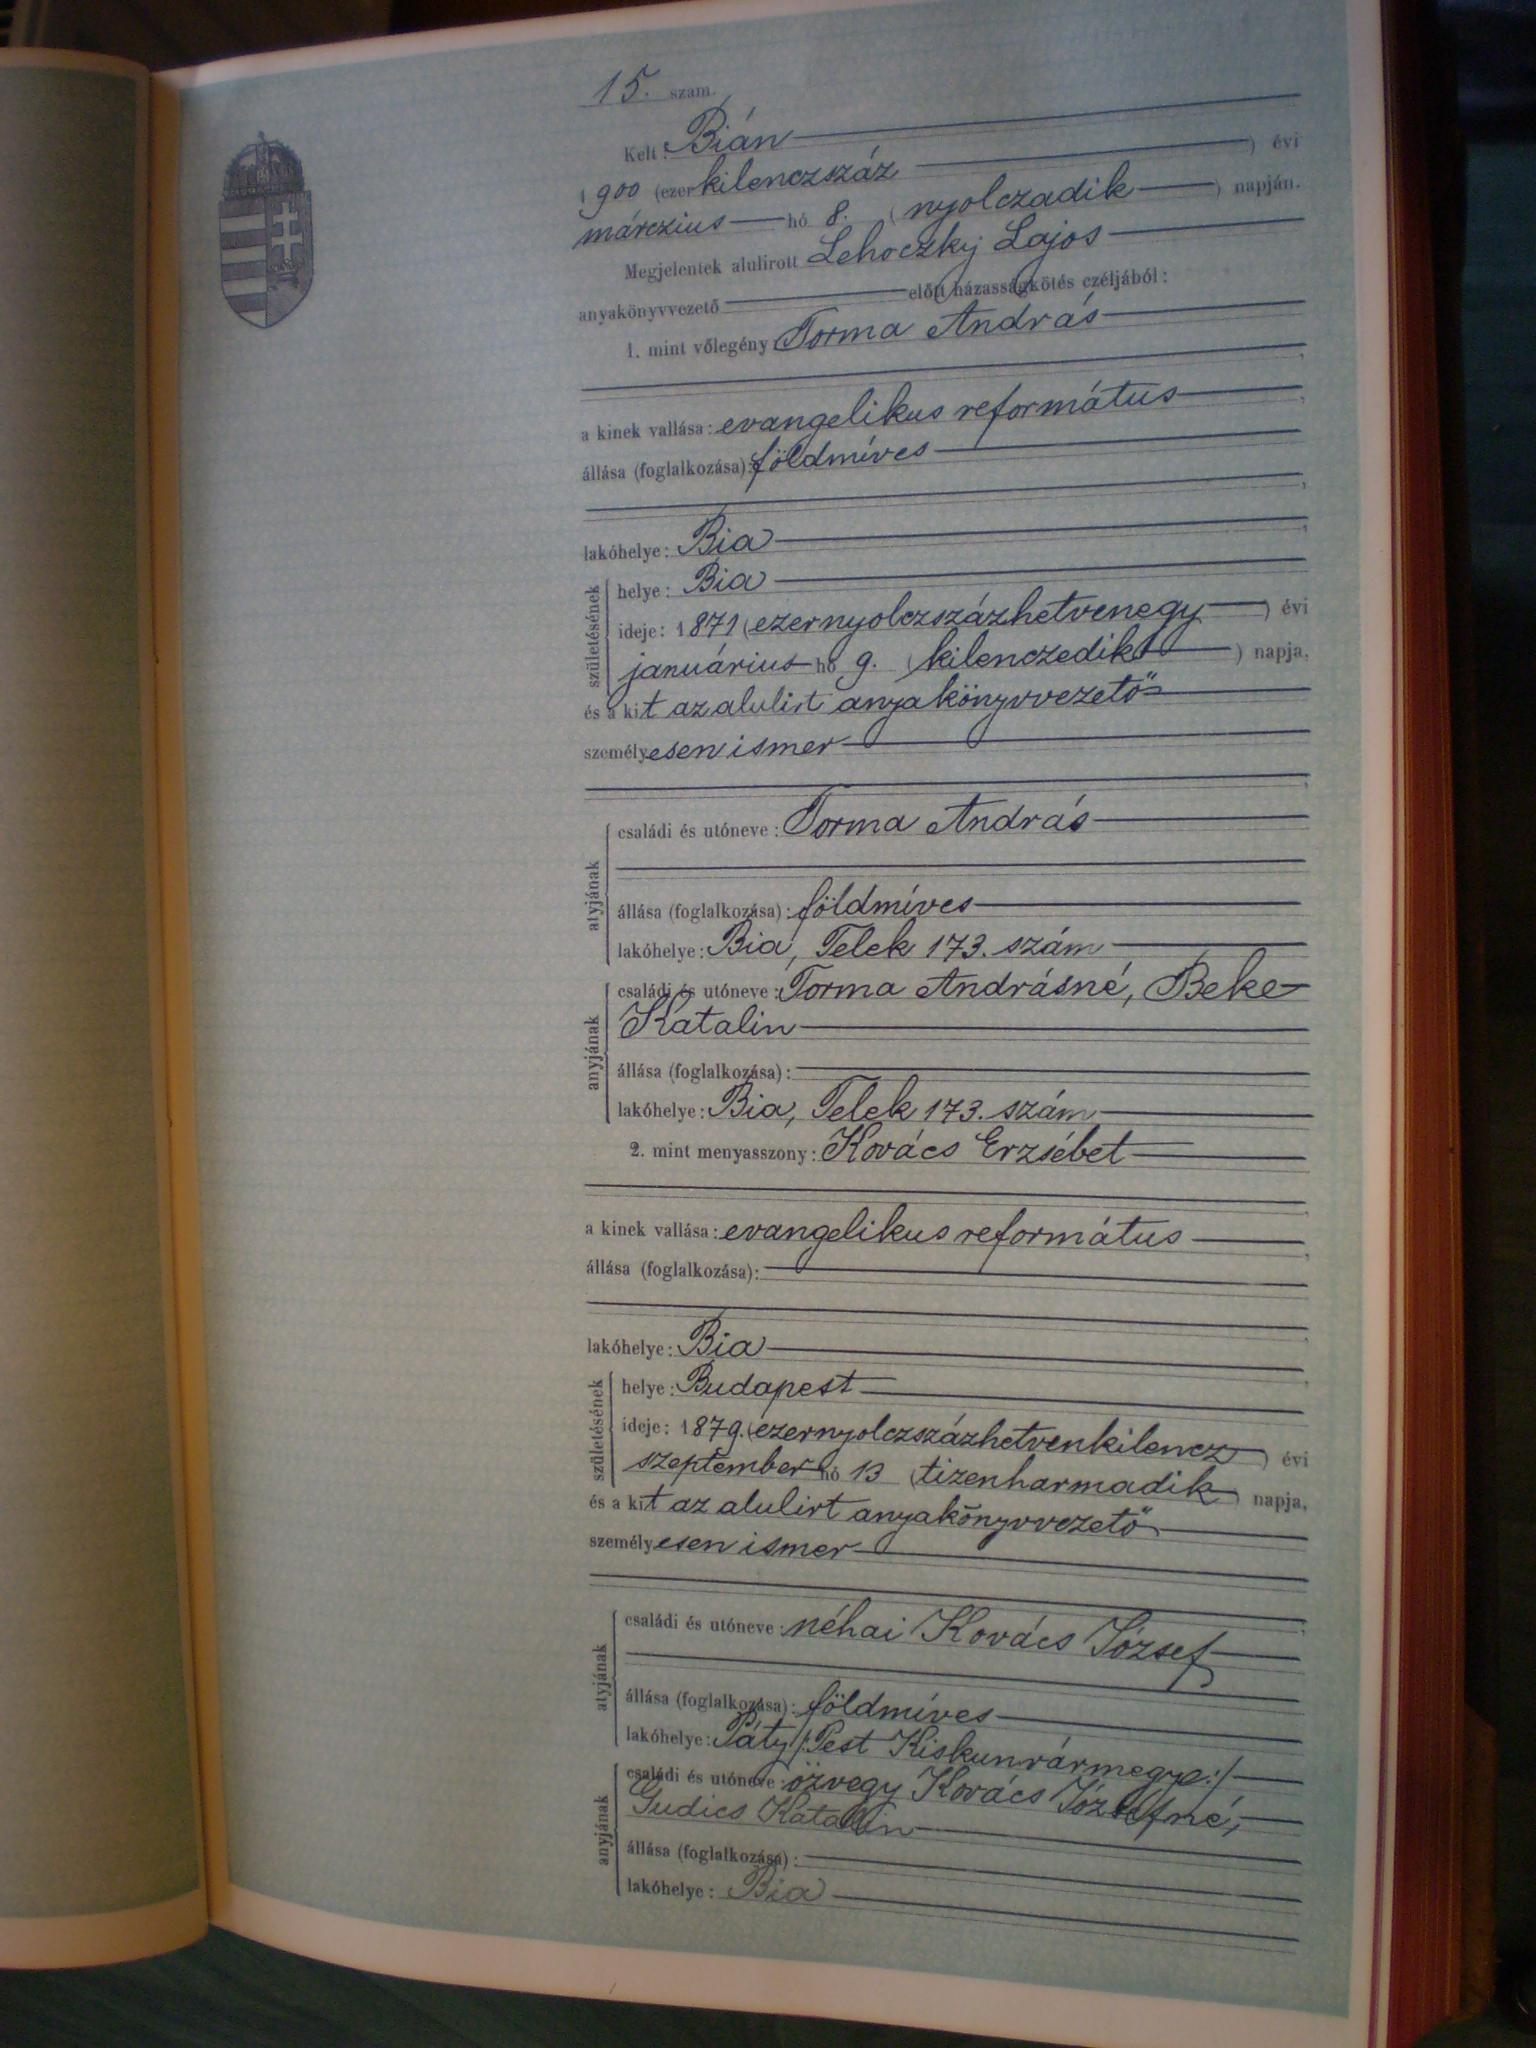 15. szám.
Kelt: Bián
1900 (ezerkilenczszáz) évi
márczius hó 8. (nyolczadik) napján.
Megjelentek alulirott Lehoczky Lajos
anyakönyvvezető előtt házasságkötés czéljából:
1. mint vőlegény Torma András
a kinek vallása: evangelikus református
állása (foglalkozása): földmíves
lakóhelye: Bia
születésének
helye: Bia
ideje: 1871 (ezernyolczszázhetvenegy) évi
januárius hó 9. (kilenczedik) napja,
és a kit az alulirt anyakönyvvezető
személyesen ismer
atyjának
családi és utóneve: Torma András
állása (foglalkozása): földmíves
lakóhelye: Bia, Telek 173. szám
anyjának
családi és utóneve: Torma Andrásné, Beke
Katalin
állása (foglalkozása):
lakóhelye: Bia, Telek 173. szám
2. mint menyasszony: Kovács Erzsébet
a kinek vallása: evangelikus református
állása (foglalkozása):
lakóhelye: Bia
születésének
helye: Budapest
ideje: 1879. (ezernyolczszázhetvenkilencz) évi
szeptember hó 13 (tizenharmadik) napja,
és a kit az alulirt anyakönyvvezető
személyesen ismer
atyjának
családi és utóneve: néhai Kovács József
állása (foglalkozása): földmíves
lakóhelye: Páty /:Pest Kiskunvármegye:/
anyjának
családi és utóneve: özvegy Kovács Józsefné,
Gudics Katalin
állása (foglalkozása):
lakóhelye: Bia